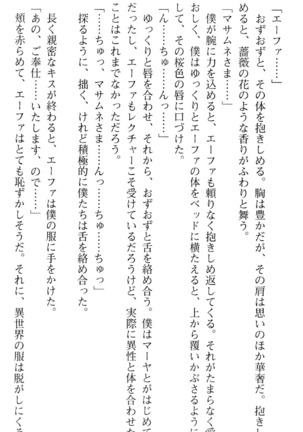 「エーファ……」
　おずおずと、その体を抱きしめる。胸は豊かだが、その肩は思いのほか華奢だ。抱きし
めると、薔薇の花のような香りがふわりと舞う。
「マサムネさま……」
　僕が腕に力を込めると、エーファも頼りなく抱きしめ返してくる。それがたまらなく愛
おしく、僕はゆっくりとエーファの体をベッドに横たえると、上から覆いかぶさるように
して、その桜色の唇に口づけた。
「ちゅっ……んっ……」
　ゆっくりと唇を合わせ、それから、おずおずと舌を絡め合う。僕はマーヤとがはじめて
だったし、エーファもレクチャーこそ受けているだろうけど、実際に異性と体を合わせた
ことはこれまでなかっただろう。
「……ちゅっ、マサムネさま……んっ……ちゅ……ちゅっ」
　探るように、拙く、けれど積極的に僕たちは舌を絡め合った。
　長く親密なキスが終わると、エーファは僕の服に手をかけた。
「あの、ご奉仕……いたします、ので……」
　頬を赤らめて、エーファはとても恥ずかしそうだ。それに、異世界の服は脱がしにくそ